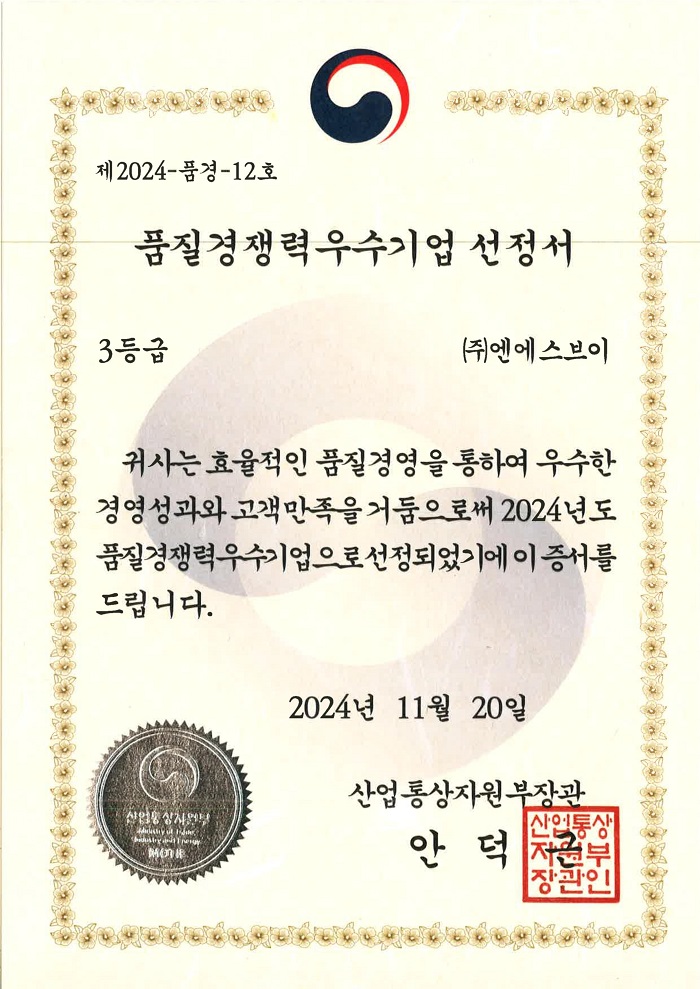 제2024-품경-12호
품질경쟁력우수기업 선정서
3등급 ㈜엔에스브이
귀사는 효율적인 품질경영을 통하여 우수한
경영성과와 고객만족을 거둠으로써 2024년도
품질경쟁력우수기업으로선정되었기에 이 증서를
드립니다.
2024년 11월 20일
산업통상자원부장관
안 덕 근
산업통상
자원부
장관인
산업통상자원부
Ministry of Trade,
Industry and Energy